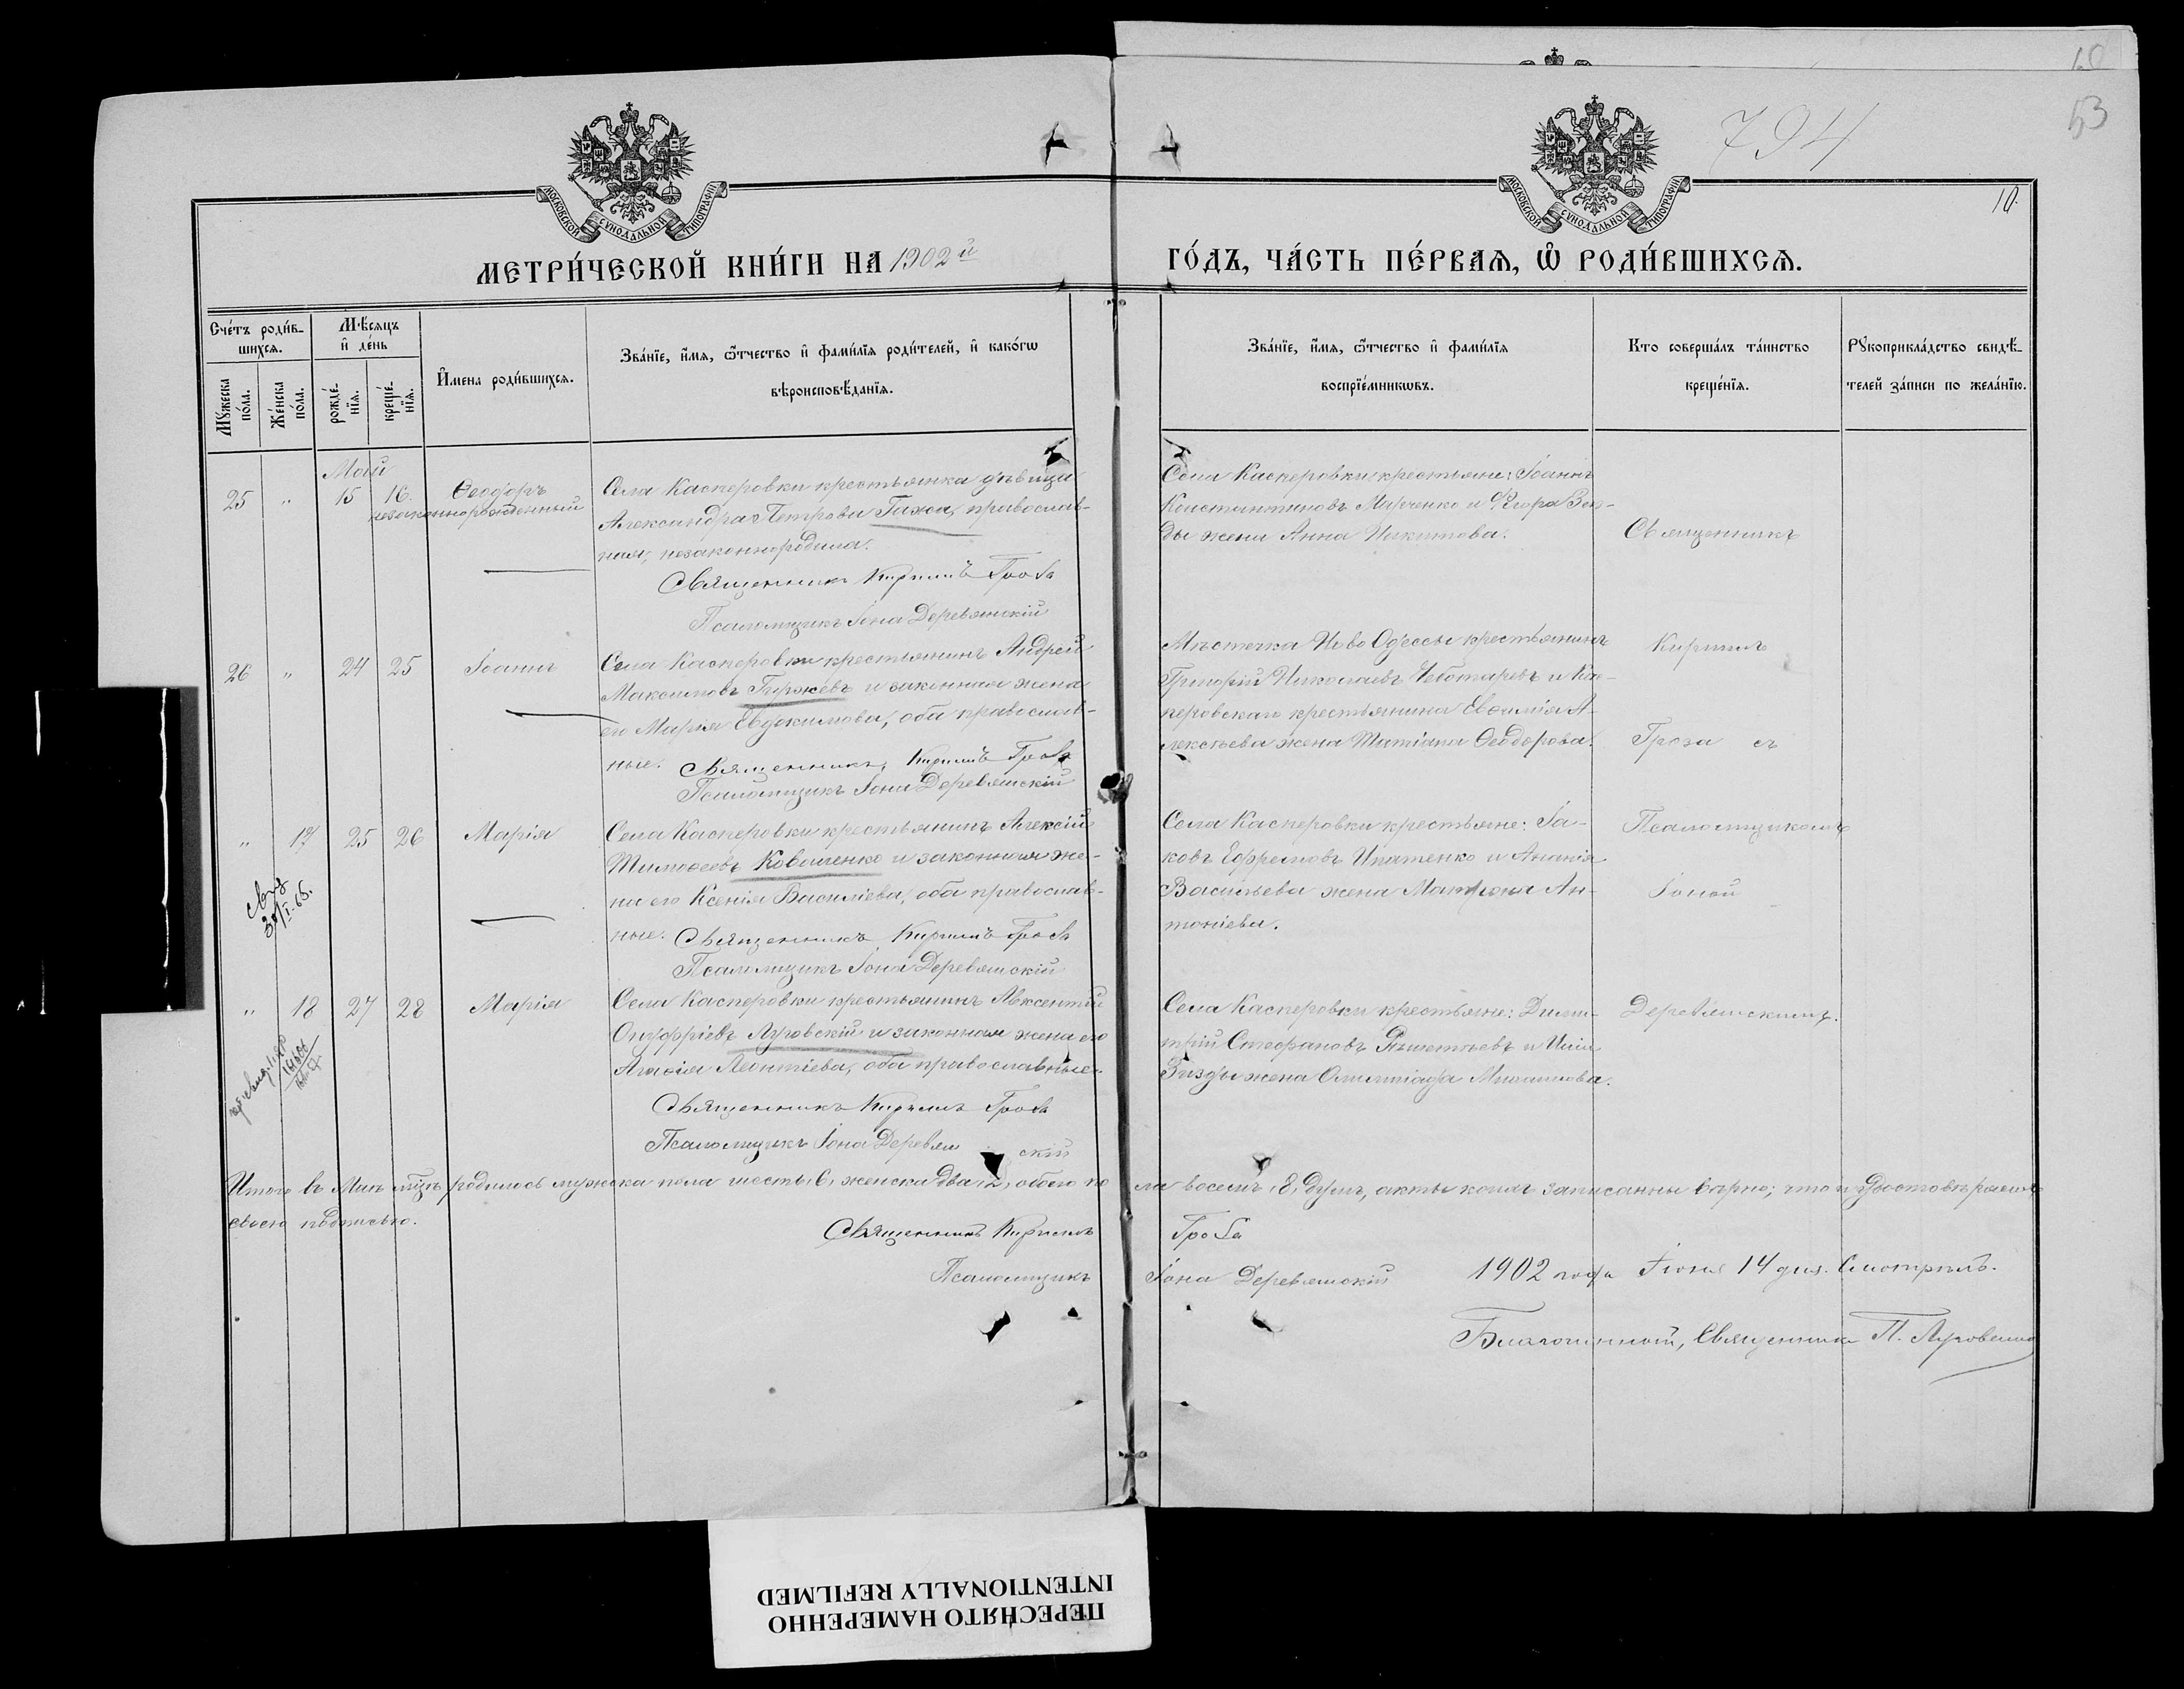 10
53
794
10.
МОСКОВСКОЙ СУНОДАЛЬНОЙ ТИПОГРАФІИ
МОСКОВСКОЙ СУНОДАЛЬНОЙ ТИПОГРАФІИ
МЕТРИ́ЧЕСКОЙ КНИ́ГИ НА 1902й
ГО́ДЪ, ЧА́СТЬ ПЕ́РВАѦ, Ѡ РОДИ́ВШИХСѦ.
Сче́тъ роди́в-
шихсѧ.
Мѣ́сѧцъ
и҆ де́нь
Мꙋ́жеска
по́ла.
Же́нска
по́ла.
рожде́-
нїѧ.
креще́-
нїѧ.
И҆мена роди́вшихсѧ.
Зва́нїе, и҆́мѧ, ѻ҆́тчество и҆ фами́лїѧ роди́телей, и҆ како́гѡ
вѣроисповѣ́данїѧ.
Зва́нїе, и҆́мѧ, ѻ҆́тчество и҆ фами́лїѧ
воспрїе́мникѡвъ.
Кто соверша́лъ та́инство
креще́нїѧ.
Рꙋкоприкла́дство свидѣ́-
телей за́писи по жела́нїю.
Май
25 " 15 16. Ѳеодоръ
незаконнорожденный
Села Касперовки крестьянка дѣвица
Александра Петрова Гажа, православ-
ная, незаконнородила.
Священникъ Кириллъ Гроза
Псаломщикъ Іона Деревянскій
Села Касперовки крестьяне: Іоаннъ
Константиновъ Марченко и Ѳеодора
ды жена Анна Никитова.
Священникъ
26 " 24 25 Іоаннъ
Села Касперовки крестьянинъ Андрей
Максимовъ Гиржевъ и законная жена
его Марія Евдокимова, оба православ-
ные. Священникъ Кириллъ Гроза
Псаломщикъ Іона Деревянскій
Мѣстечка Ново Одессы крестьянинъ
Григорій Николаевъ Чеботаревъ и Кас-
перовскаго крестьянина Евѳимія А-
лексѣева жена Татіана Ѳеодорова.
Кирилъ
Гроза съ
" 17 25 26 Марія
Села Касперовки крестьянинъ Алексій
Тимоѳеевъ Коваленко и законная же-
на его Ксенія Василіева, оба православ-
ные. Священникъ Кириллъ Гроза
Псаломщикъ Іона Деревянскій
Села Касперовки крестьяне: Іа-
ковъ Ефремовъ Игнатенко и Ананія
Васильева жена Матрона Ан-
тоніева.
Псаломщикомъ
Іоной
30/I.65.
" 18 27 28 Марія
Села Касперовки крестьянинъ Авксентій
Онуфріевъ Луговскій и законная жена его
Агаѳія Леонтіева, оба православные.
Священникъ Кириллъ Гроза
Псаломщикъ Іона Деревянскій
Села Касперовки крестьяне: Дими-
трій Стефановъ и Иліи
жена Олимпіада Михаилова.
Деревянскимъ.
Итого въ Маѣ мѣсяцѣ родилось мужска пола шесть, 6, женска два, 2, обоего пола восемь, 8, душъ, акты коихъ записанны вѣрно; что и удостовѣряемъ
своею подписью.
Священникъ Кириллъ Гроза
Псаломщикъ Іона Деревянскій
1902 года Іюня 14 дня. Смотрѣлъ.
Благочинный, Священникъ П.
ПЕРЕСНЯТО НАМЕРЕННО
INTENTIONALLY REFILMED